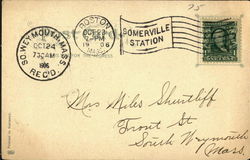 75
BOSTON
OCT 23
7-PM
1906
MASS.
SOMERVILLE
STATION
SO. WEYMOUTH, MASS.
OCT 24
730AM
1906
REC'D.
Mrs Miles Shurtliff
Front St
South Weymouth
Mass.